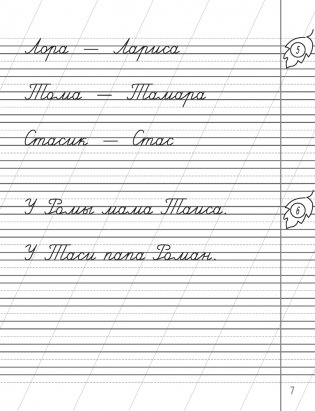 Лора — Лариса
5
Тома — Тамара
Стасик — Стас
У Ромы мама Таиса.
6
У Таси папа Роман.
7